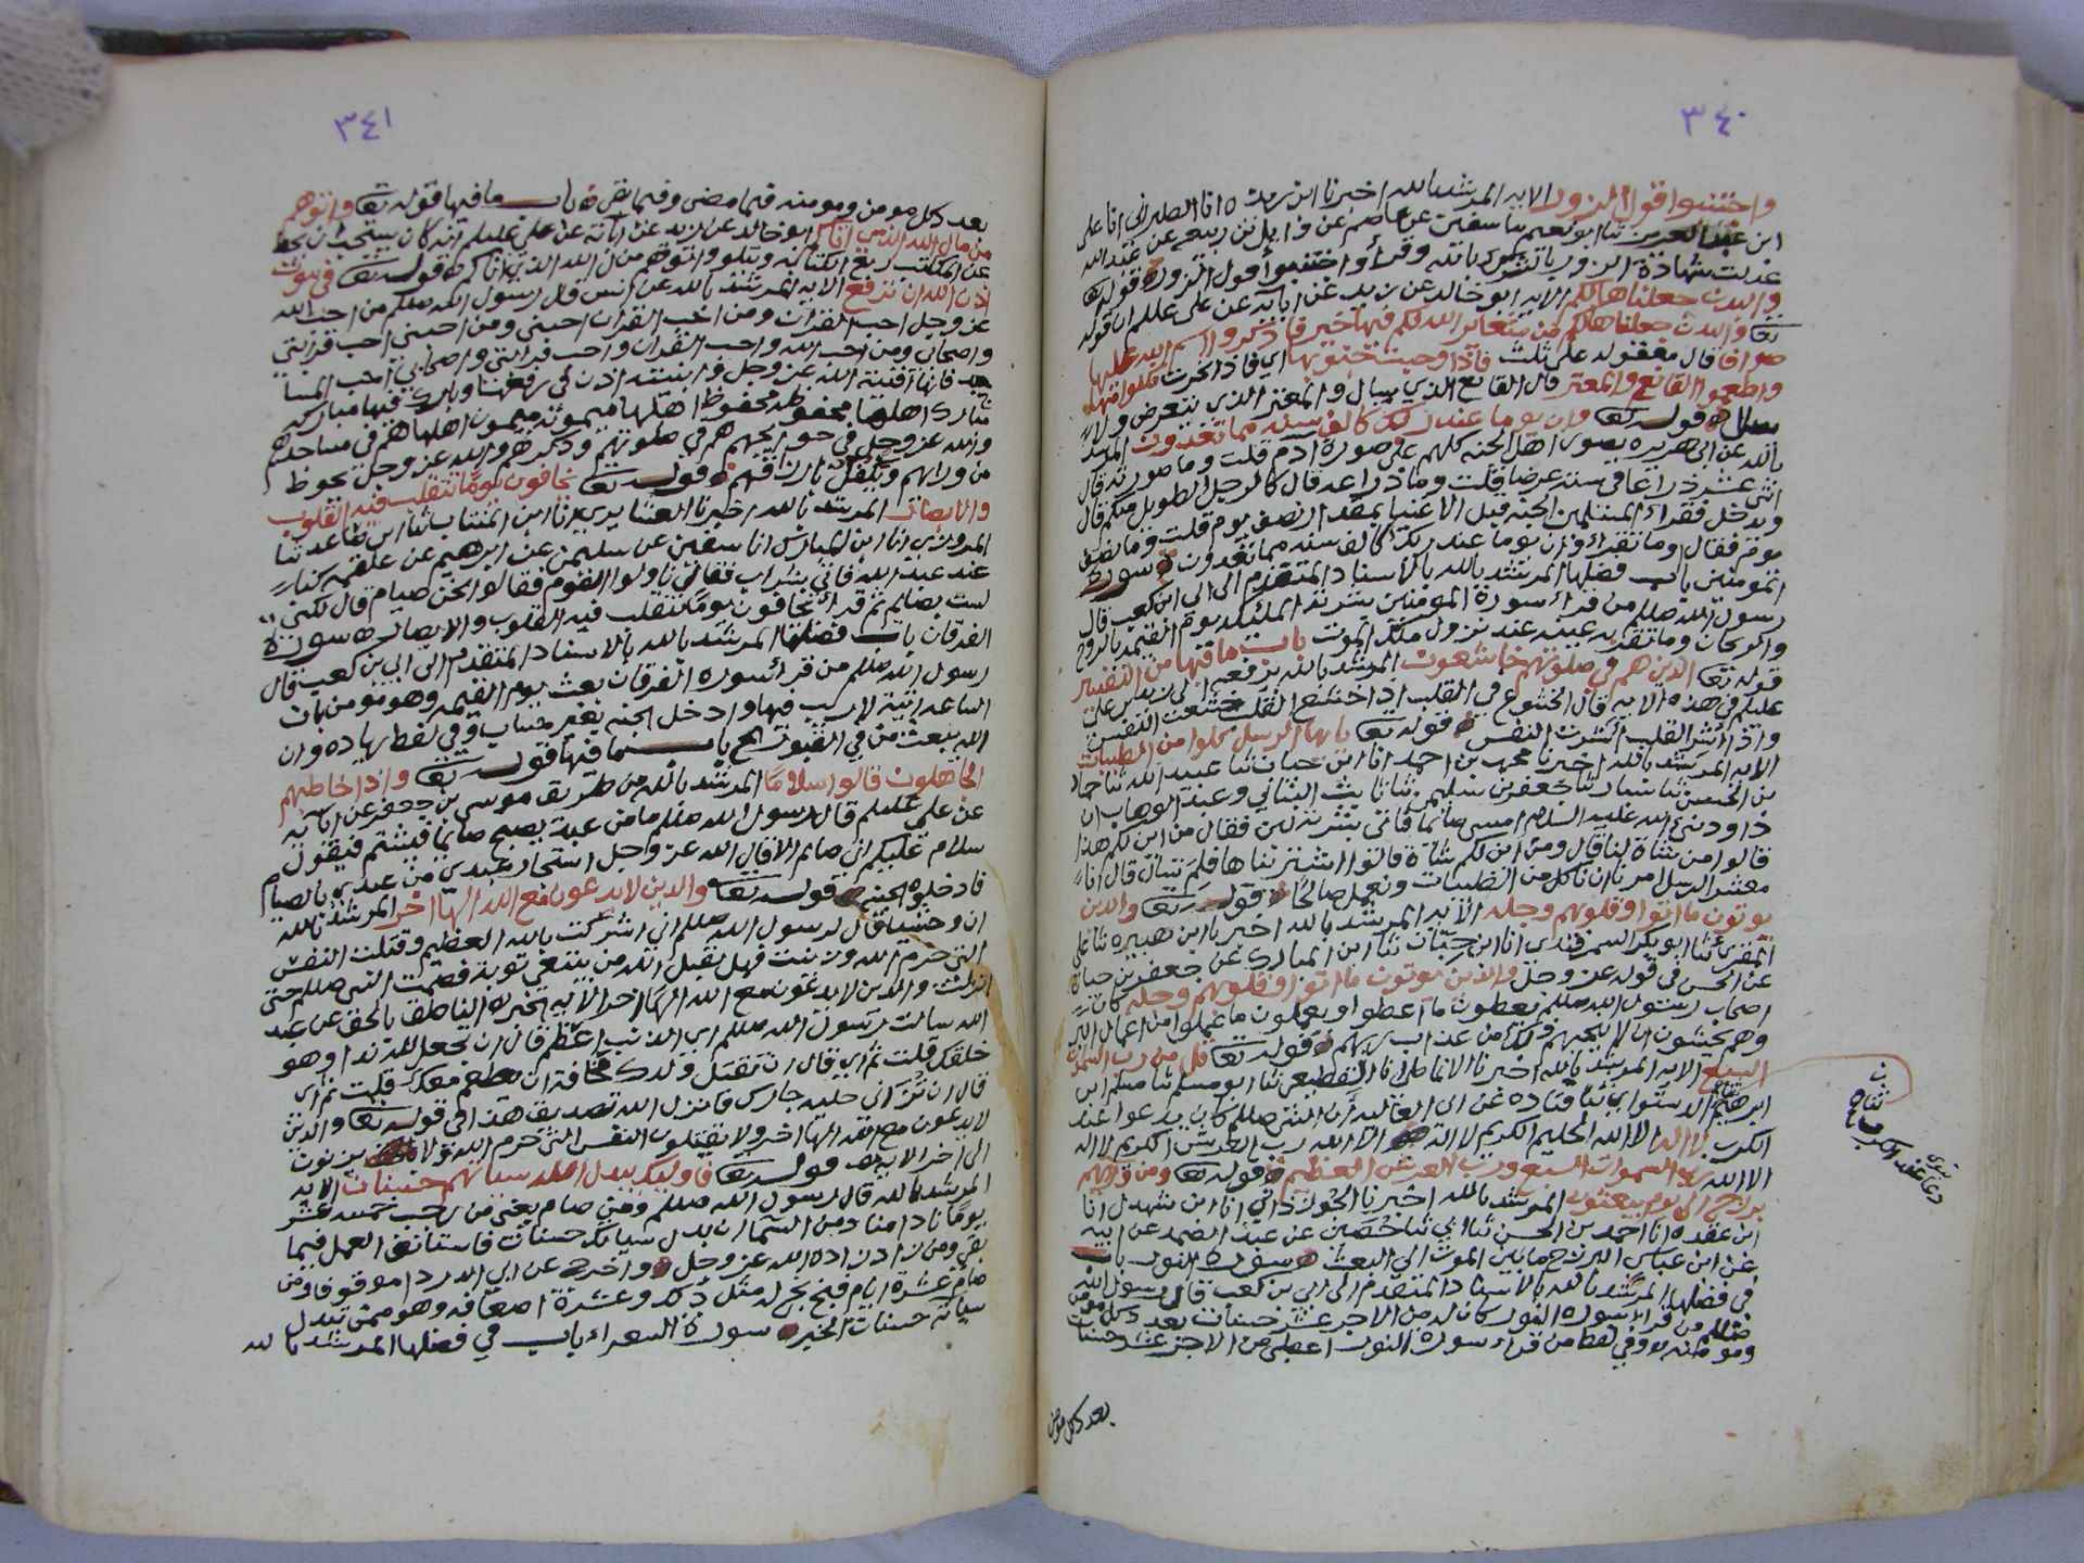 ٣٤٠
واجتنبوا قول الزور الايه المرشد بالله اخبرنا ابن ريذه انا الطبراني انا على
ابن عبد العزيز ثنا ابو نعيم ثنا سفين عن عاصم عن وايل بن ربيعه عن عبد الله
عدلت شهادة الزور بالشرك بالله وقرأ واجتنبوا قول الزور قوله تعا
والبدن جعلناها لكم الايه ابو خالد عن زيد عن ابايه عن على عللم ان قوله
تعا والبدن جعلناها لكم من شعاير الله لكم فيها خير فاذكروا اسم الله عليها
صواف قال معقوله على ثلث فاذا وجبت جنوبها اي فاذا نحرت فكلوا منها
واطعموا القانع والمعتر قال القانع الذي يسال والمعتر الذي يتعرض ولا
يسال قوله تعا وان يوما عند ربك كالف سنه مما تعدون المرشد
بالله عن ابى هريره يصون اهل الجنه كلهم على صورة آدم قلت وما صورته قال
اثنى عشر ذراعا في ستة عرضا قلت وما ذراعه قال كالرجل الطويل منكم قال
ويدخل فقراء المسلمين الجنه قبل الاغنيا بمقدار نصف يوم قلت وما نصف
يوم فقال اوما تقراء وان يوما عند ربك كالف سنه مما تعدون سورة
المومنين باب فضلها المرشد بالله بالاسناد المتقدم الى ابى ابن كعب قال
رسول الله صللم من قراء سورة المومنين بشرته الملئكه يوم القيمه بالروح
والريحان وما تقر به عينه عند نزول ملك الموت باب ما فيها من التفسير
قوله تعا الذين هم في صلوتهم خاشعون المرشد بالله يرفعه الى زيد بن على
عليلم في هذه الايه قال الخشوع في القلب اذا خشع القلب خشعت النفس
واذا اشر القلب اشرت النفس قوله تعا يايها الرسل كلوا من الطيبات
الايه المرشد بالله اخبرنا محمد بن احمد انا ابن حيان ثنا عبيد الله ثنا حماد
بن الحسن ثنا سيار ثنا جعفر بن سليمن ثنا ثابت البناني وعبد الوهاب ان
داود نبي الله عليه السلام امسى صائما فاتى بشربة لبن فقال من اين لكم هذا
قالوا من شاة لنا قال ومن اين لكم شاة قالوا اشترينا ها فلم تسال قال انا
معشر الرسل امرنا ان ناكل من الطيبات ونعمل صالحا قوله تعا والذين
يوتون ما اتوا وقلوبهم وجله الايه المرشد بالله اخبرنا ابن هبيره ثنا على
المقرى ثنا ابو بكر السمرقندي انا ابن حبان ثنا ابن المبارك عن جعفر بن حيان
عن الحسن في قوله عز وجل والذين يوتون ما اتوا وقلوبهم وجله كان
اصحاب رسول الله صللم يعطون ما اعطوا ويعملون ما عملوا من اعمال البر
وهم يخشون ان لا ينجيهم ذلك من عذاب ربهم قوله تعا قل من رب السموات
السبع الايه المرشد بالله اخبرنا الانماطى انا القطيعى ثنا ابو مسلم ثنا مسلم ابن
ابرهيم الدستواي ثنا قتاده عن ابى العاليه ان النبى صللم كان يدعوا عند
الكرب لا اله الا الله الحليم الكريم لا اله الا الله رب العرش الكريم لا اله
الا الله رب السموات السبع ورب العرش العظيم قوله تعا ومن ورائهم
برزخ الى يوم يبعثون المرشد بالله اخبرنا الجوزذاني انا ابن شهدل انا
ابن عقده انا احمد بن الحسن ثنا ابي ثنا حصين عن عبد الصمد عن ابيه
عن ابن عباس البرزخ ما بين الموت الى البعث سورة النور باب
في فضلها المرشد بالله بالاسناد المتقدم الى ابي بن كعب قال رسول الله
صللم من قراء سورة النور كان له من الاجر عشر حسنات بعدد كل مومن
ومومنه وفي لفظ من قراء سورة النور اعطي من الاجر عشر حسنات
ثنا
دعا عند الكرب
بعدد كل مومن
٣٤١
بعدد كل مومن ومومنه فيما مضى وفيما بقى باب ما فيها قوله تعا واتوهم
من مال الله الذي اتاكم ابو خالد عن زيد عن ابائه عن علي عليلم انه كان يستحب ان يحط
عن المكاتب ربع الكتابه ويتلو واتوهم من مال الله الذي اتاكم قوله تعا في بيوت
اذن الله ان ترفع الايه المرشد بالله عن انس قال رسول الله صللم من احب الله
عز وجل احب القران ومن احب القران احبني ومن احبني احب قرابتي
واصحابي ومن احب الله واحب القران واحب قرابتي واصحابي احب المسا
جد فانها افنية الله عز وجل وابنيته اذن في رفعها وبارك فيها مباركه
مبارك اهلها محفوظه محفوظ اهلها ميمونه ميمون اهلها هم في مساجدهم
والله عز وجل في حوائجهم هم في صلوتهم وذكرهم والله عز وجل يحوط
من ورائهم ويتكفل بارزاقهم قوله تعا يخافون يوما تتقلب فيه القلوب
والابصار المرشد بالله اخبرنا العشايري انا ابن المنتاب ثنا ابن صاعد ثنا
المروزي انا ابن المبارك انا سفين عن سليمن عن ابرهيم عن علقمه كنا
عند عبد الله فاتي بشراب فقال ناولوا القوم فقالوا نحن صيام قال لكني
لست بصائم ثم قراء يخافون يوما تتقلب فيه القلوب والابصار سورة
الفرقان باب فضلها المرشد بالله بالاسناد المتقدم الى ابي بن كعب قال
رسول الله صللم من قرأ سورة الفرقان بعث يوم القيمه وهو مومن بان
الساعه اتيه لا ريب فيها وادخل الجنه بغير حساب وفي لفظ بزياده وان
الله يبعث من في القبور الخ باب ما فيها قوله تعا واذا خاطبهم
الجاهلون قالوا سلاما المرشد بالله من طريق موسى بن جعفر عن ابآئه
عن علي عليلم قال رسول الله صللم ما من عبد يصبح صائما فيشتم فيقول
سلام عليكم اني صائم الا قال الله عز وجل استجار عبدي من عبدي بالصيام
فادخلوه الجنه قوله تعا والذين لا يدعون مع الله الها اخر المرشد بالله
ان وحشيا قال لرسول الله صللم اني اشركت بالله العظيم وقتلت النفس
التي حرم الله وزنيت فهل يقبل الله من يبتغي توبة فصمت النبي صللم حتى
انزلت والذين لا يدعون مع الله الها اخر الايه اخبره الناطق بالحق عن عبد
الله سالت رسول الله صللم اي الذنب اعظم قال ان تجعل لله ندا وهو
خلقك قلت ثم اي قال ان تقتل ولدك مخافة ان يطعم معك قلت ثم اى
قال ان تزاني حليلة جارك فانزل الله تصديق هذا الى قوله تعا والذين
لا يدعون مع الله الها اخر ولا يقتلون النفس التى حرم الله ولا يزنون
الى اخر الايه قوله تعا فاوليك يبدل الله سيئاتهم حسنات الايه
المرشد بالله قال رسول الله صللم ومن صام يعني من رجب خمسه عشر
يوما نادا مناد من السما ان بدل سياتك حسنات فاستانف العمل فيما
بقى ومن زاد زاده الله عز وجل واخرج عن ابي الدردا موقوفا ومن
صام عشرة ايام فبخ بخ له مثل ذلك وعشرة اضعافه وهو ممن تبدل
سياته حسنات الخبر سورة الشعراء باب في فضلها المرشد بالله